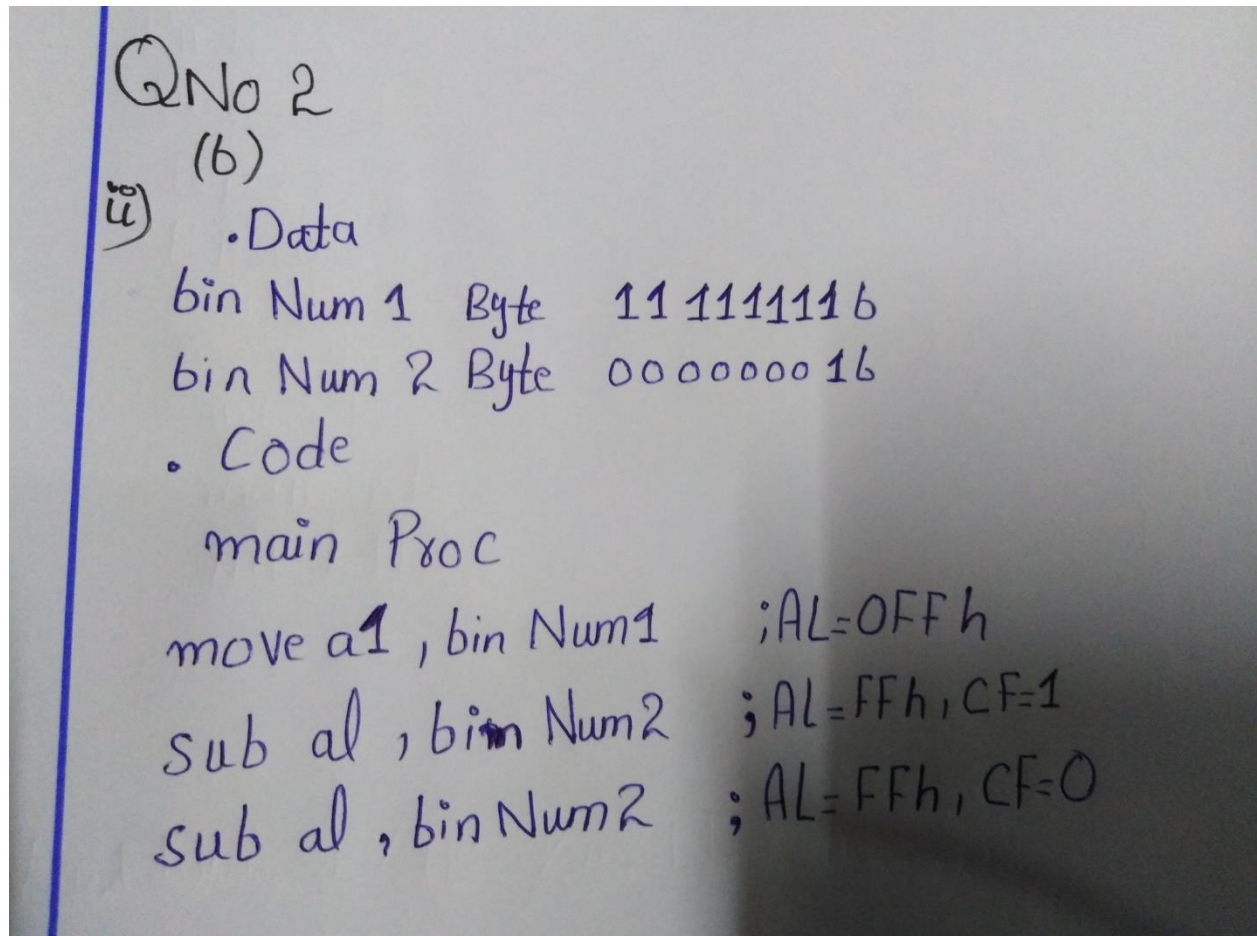 QNo 2
(b)
ii) .Data
bin Num 1 Byte 11111111b
bin Num 2 Byte 00000001b
. Code
main Proc
move a1, bin Num1 ;AL=0FFh
sub al, bin Num2 ;AL=FFh, CF=1
sub al, bin Num2 ;AL=FFh, CF=0